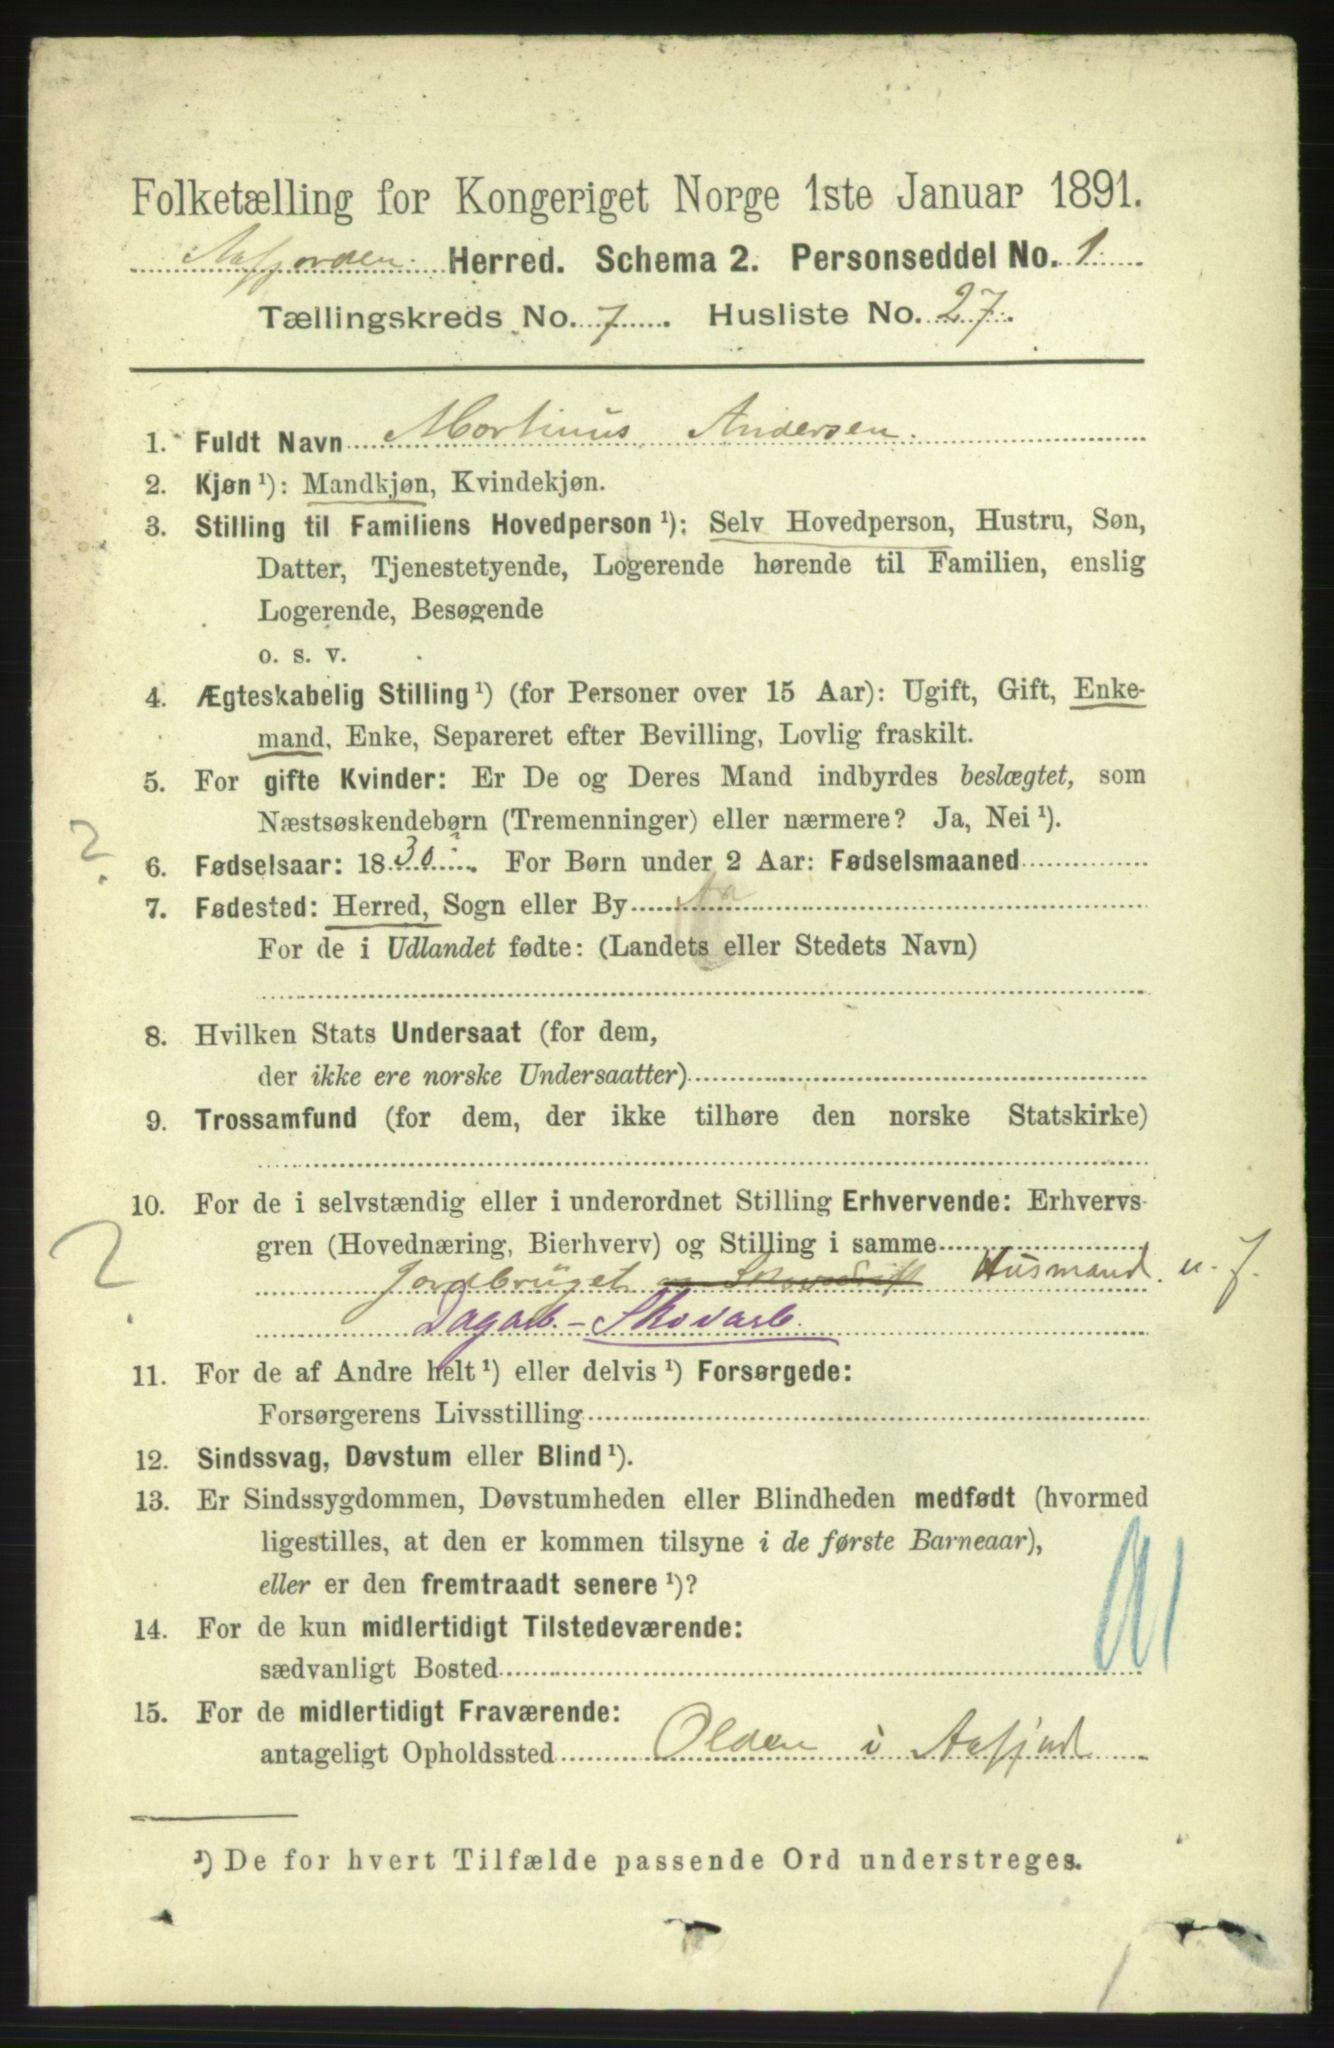 Folketælling for Kongeriget Norge 1ste Januar 1891.
Aafjorden Herred. Schema 2. Personseddel No. 1
Tællingskreds No. 7. Husliste No. 27.
1. Fuldt Navn Mortinus Andersen.
2. Kjøn ¹): Mandkjøn, Kvindekjøn.
3. Stilling til Familiens Hovedperson ¹): Selv Hovedperson, Hustru, Søn,
Datter, Tjenestetyende, Logerende hørende til Familien, enslig
Logerende, Besøgende
o. s. v.
4. Ægteskabelig Stilling ¹) (for Personer over 15 Aar): Ugift, Gift, Enke-
mand, Enke, Separeret efter Bevilling, Lovlig fraskilt.
5. For gifte Kvinder: Er De og Deres Mand indbyrdes beslægtet, som
Næstsøskendebørn (Tremenninger) eller nærmere? Ja, Nei ¹).
?
6. Fødselsaar: 1830. For Børn under 2 Aar: Fødselsmaaned
7. Fødested: Herred, Sogn eller By Aa
For de i Udlandet fødte: (Landets eller Stedets Navn)
8. Hvilken Stats Undersaat (for dem,
der ikke ere norske Undersaatter)
9. Trossamfund (for dem, der ikke tilhøre den norske Statskirke)
10. For de i selvstændig eller i underordnet Stilling Erhvervende: Erhvervs-
gren (Hovednæring, Bierhverv) og Stilling i samme
? Jordbruget og Skovdrift Husmand. u. J.
Dagarb. - Skovarb.
11. For de af Andre helt ¹) eller delvis ¹) Forsørgede:
Forsørgerens Livsstilling
12. Sindssvag, Døvstum eller Blind ¹).
13. Er Sindssygdommen, Døvstumheden eller Blindheden medfødt (hvormed
ligestilles, at den er kommen tilsyne i de første Barneaar),
eller er den fremtraadt senere ¹)?
14. For de kun midlertidigt Tilstedeværende:
sædvanligt Bosted
15. For de midlertidigt Fraværende:
antageligt Opholdssted Olden i Aafjord
¹) De for hvert Tilfælde passende Ord understreges.